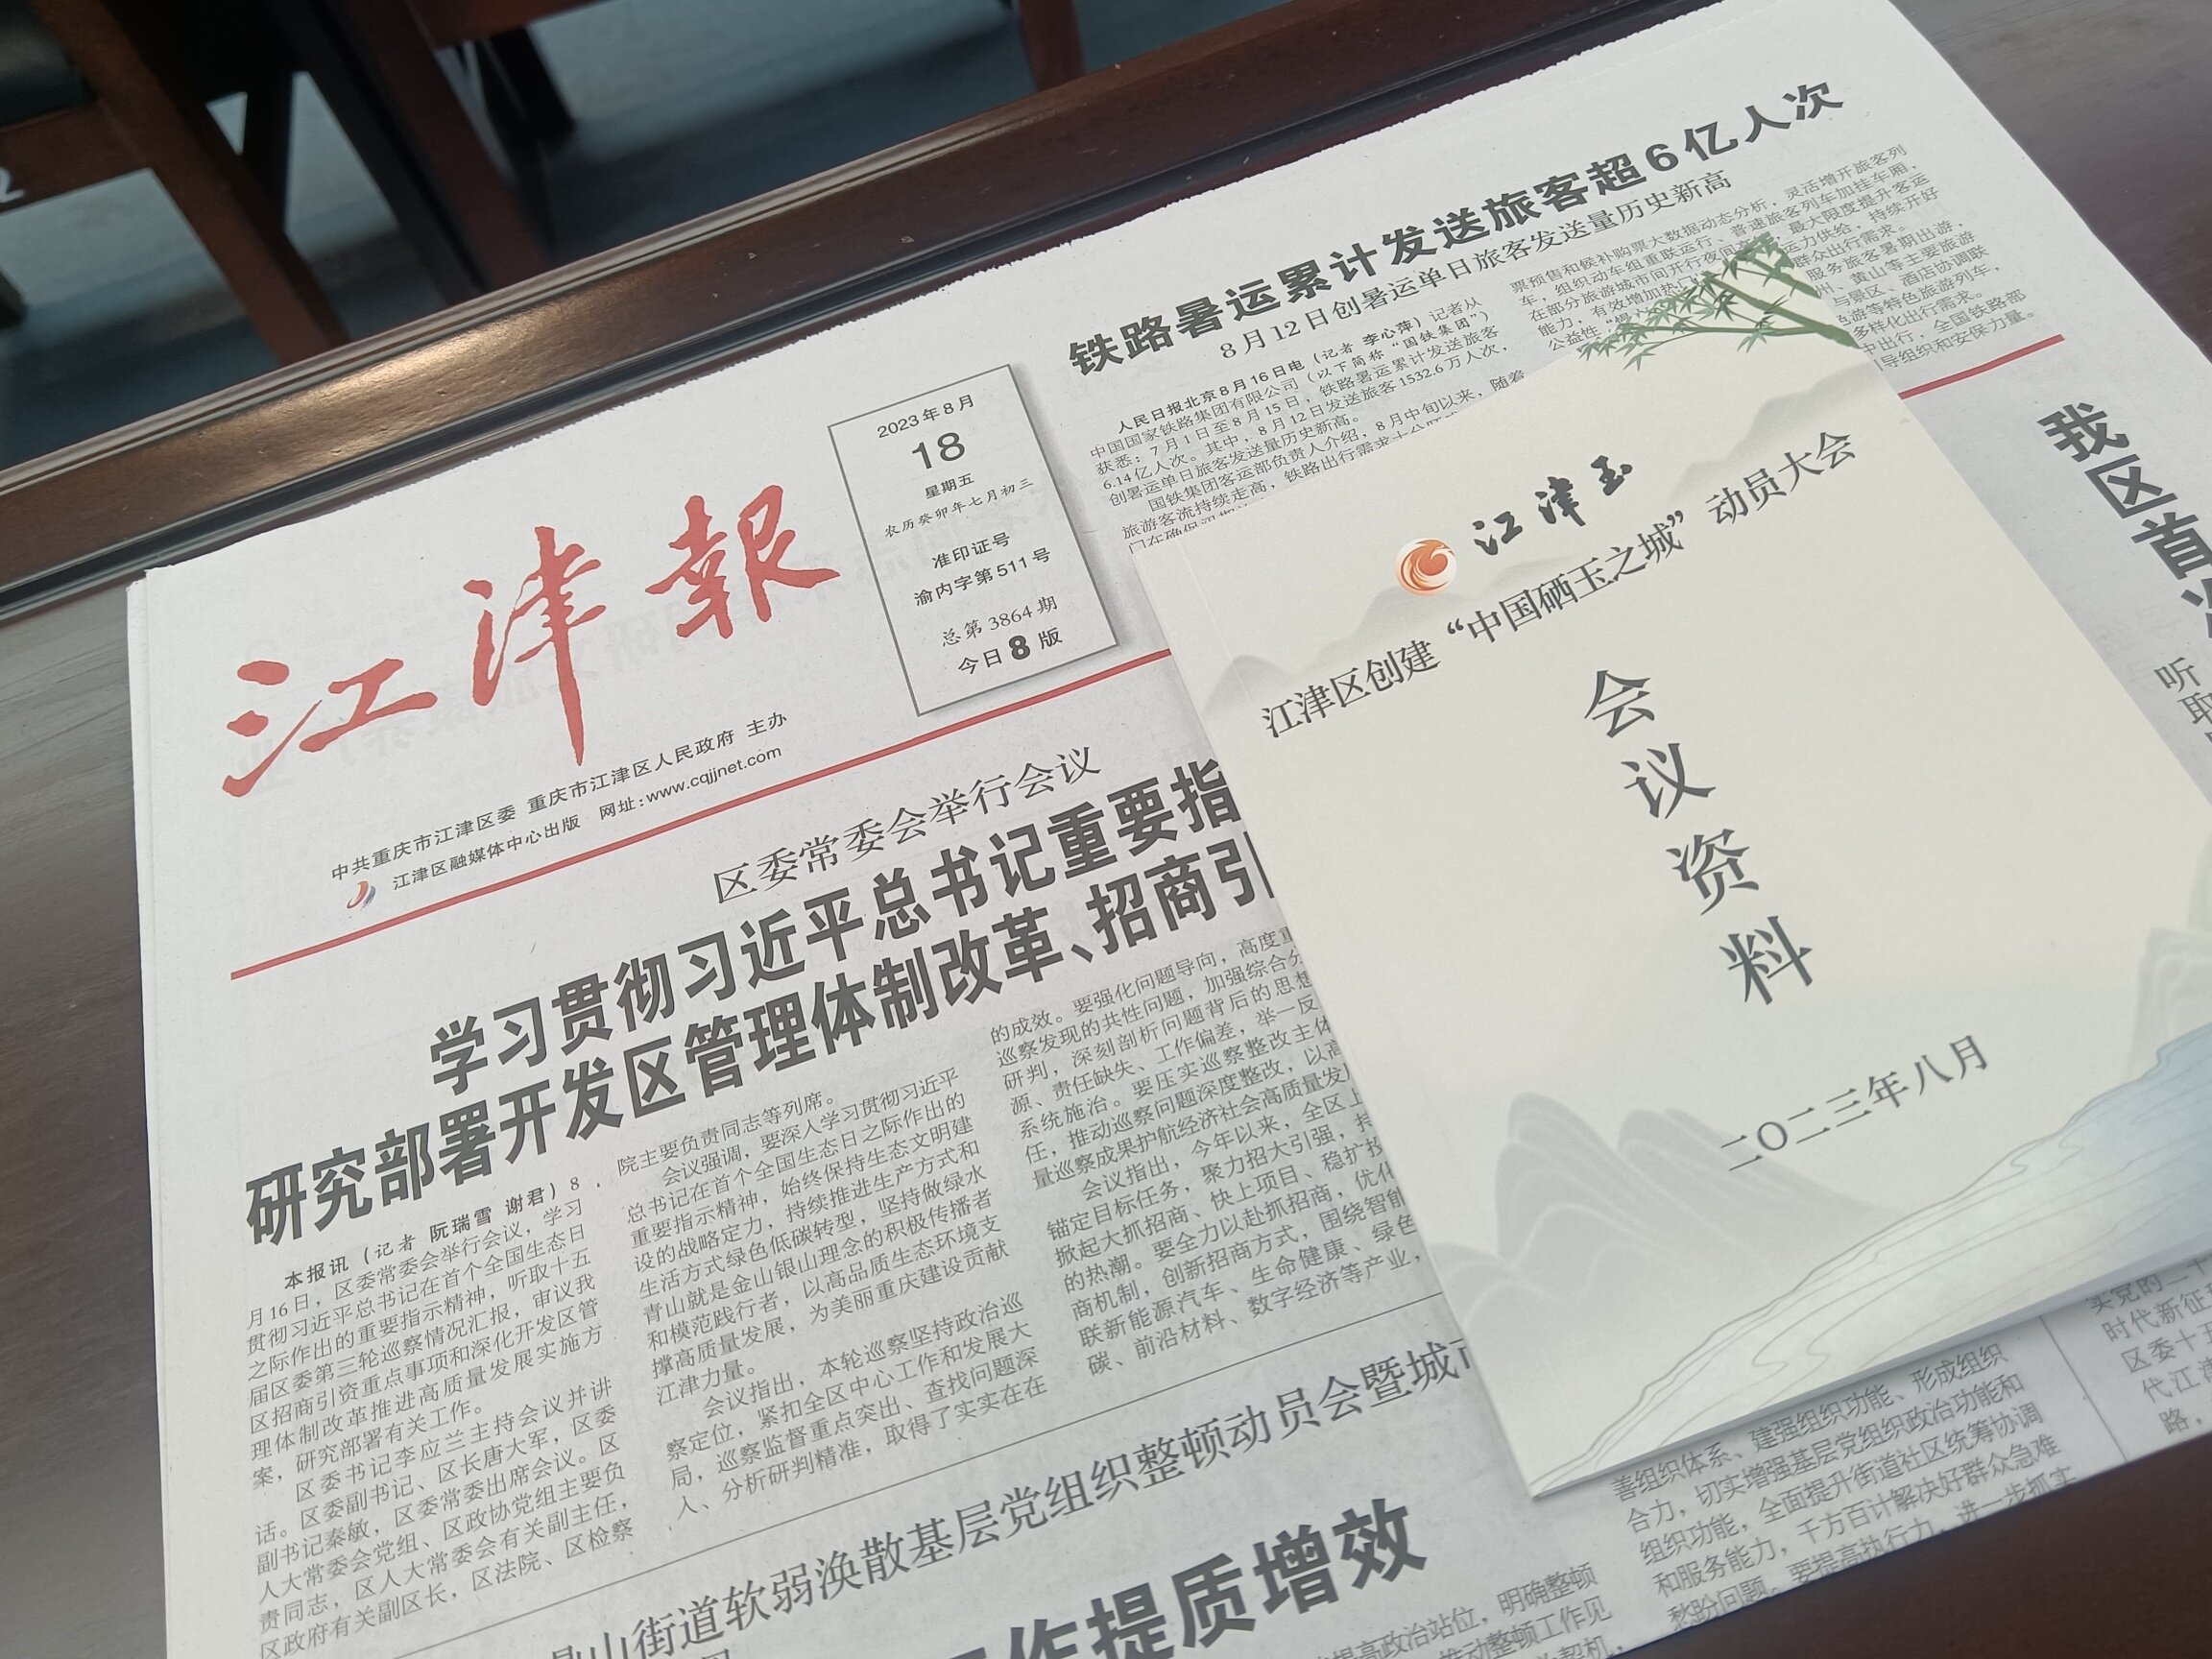 铁路暑运累计发送旅客超6亿人次
8月12日创暑运单日旅客发送量历史新高
人民日报北京8月16日电(记者 李心萍)记者从
中国国家铁路集团有限公司(以下简称“国铁集团”)
获悉:7月1日至8月15日,铁路暑运累计发送旅客
6.14亿人次。其中,8月12日发送旅客1532.6万人次,
创暑运单日旅客发送量历史新高。
国铁集团客运部负责人介绍,8月中旬以来,随着
旅游客流持续走高,铁路出行需求
票预售和候补购票大数据动态分析,灵活增开旅客列
车,组织动车组重联运行、普速旅客列车加挂车厢,
在部分旅游城市间开行夜间
最大限度提升客运
能力,有效增加热
运力供给,
持续开好
公益性“慢
群众出行需求。
服务旅客暑期出游,
州、黄山等主要旅游
与景区、酒店协调联
游等特色旅游列车,
多样化出行需求。
中出行,全国铁路部
导组织和安保力量。
2023年8月
18
星期五
农历癸卯年七月初三
准印证号
渝内字第511号
总第3864期
今日8版
江津報
中共重庆市江津区委 重庆市江津区人民政府 主办
江津区融媒体中心出版 网址:www.cqjjnet.com
区委常委会举行会议
学习贯彻习近平总书记重要指
研究部署开发区管理体制改革、招商引
本报讯(记者 阮瑞雪 谢君)8
月16日,区委常委会举行会议,学习
贯彻习近平总书记在首个全国生态日
之际作出的重要指示精神,听取十五
届区委第三轮巡察情况汇报,审议我
区招商引资重点事项和深化开发区管
理体制改革推进高质量发展实施方
案,研究部署有关工作。
区委书记李应兰主持会议并讲
话。区委副书记、区长唐大军,区委
副书记秦敏,区委常委出席会议。区
人大常委会党组、区政协党组主要负
责同志,区人大常委会有关副主任,
区政府有关副区长,区法院、区检察
院主要负责同志等列席。
会议强调,要深入学习贯彻习近平
总书记在首个全国生态日之际作出的
重要指示精神,始终保持生态文明建
设的战略定力,持续推进生产方式和
生活方式绿色低碳转型,坚持做绿水
青山就是金山银山理念的积极传播者
和模范践行者,以高品质生态环境支
撑高质量发展,为美丽重庆建设贡献
江津力量。
会议指出,本轮巡察坚持政治巡
察定位,紧扣全区中心工作和发展大
局,巡察监督重点突出、查找问题深
入、分析研判精准,取得了实实在在
的成效。要强化问题导向,高度重
巡察发现的共性问题,加强综合分
研判,深刻剖析问题背后的思想
源、责任缺失、工作偏差,举一反
系统施治。要压实巡察整改主体
任,推动巡察问题深度整改,以高
量巡察成果护航经济社会高质量发展
会议指出,今年以来,全区上
锚定目标任务,聚力招大引强,持
掀起大抓招商、快上项目、稳扩投
的热潮。要全力以赴抓招商,优化
商机制,创新招商方式,围绕智能
联新能源汽车、生命健康、绿色
碳、前沿材料、数字经济等产业,
山街道软弱涣散基层党组织整顿动员会暨城市
工作提质增效
提高政治站位,明确整顿
推动整顿工作见
善组织体系、建强组织功能、形成组织
合力,切实增强基层党组织政治功能和
组织功能,全面提升街道社区统筹协调
和服务能力,千方百计解决好群众急难
愁盼问题。要提高执行力,进一步抓实
我区首
听
取
实党的二十
时代新征
区委十五
代江津
路,
江津玉
江津区创建“中国硒玉之城”动员大会
会
议
资
料
二〇二三年八月
2